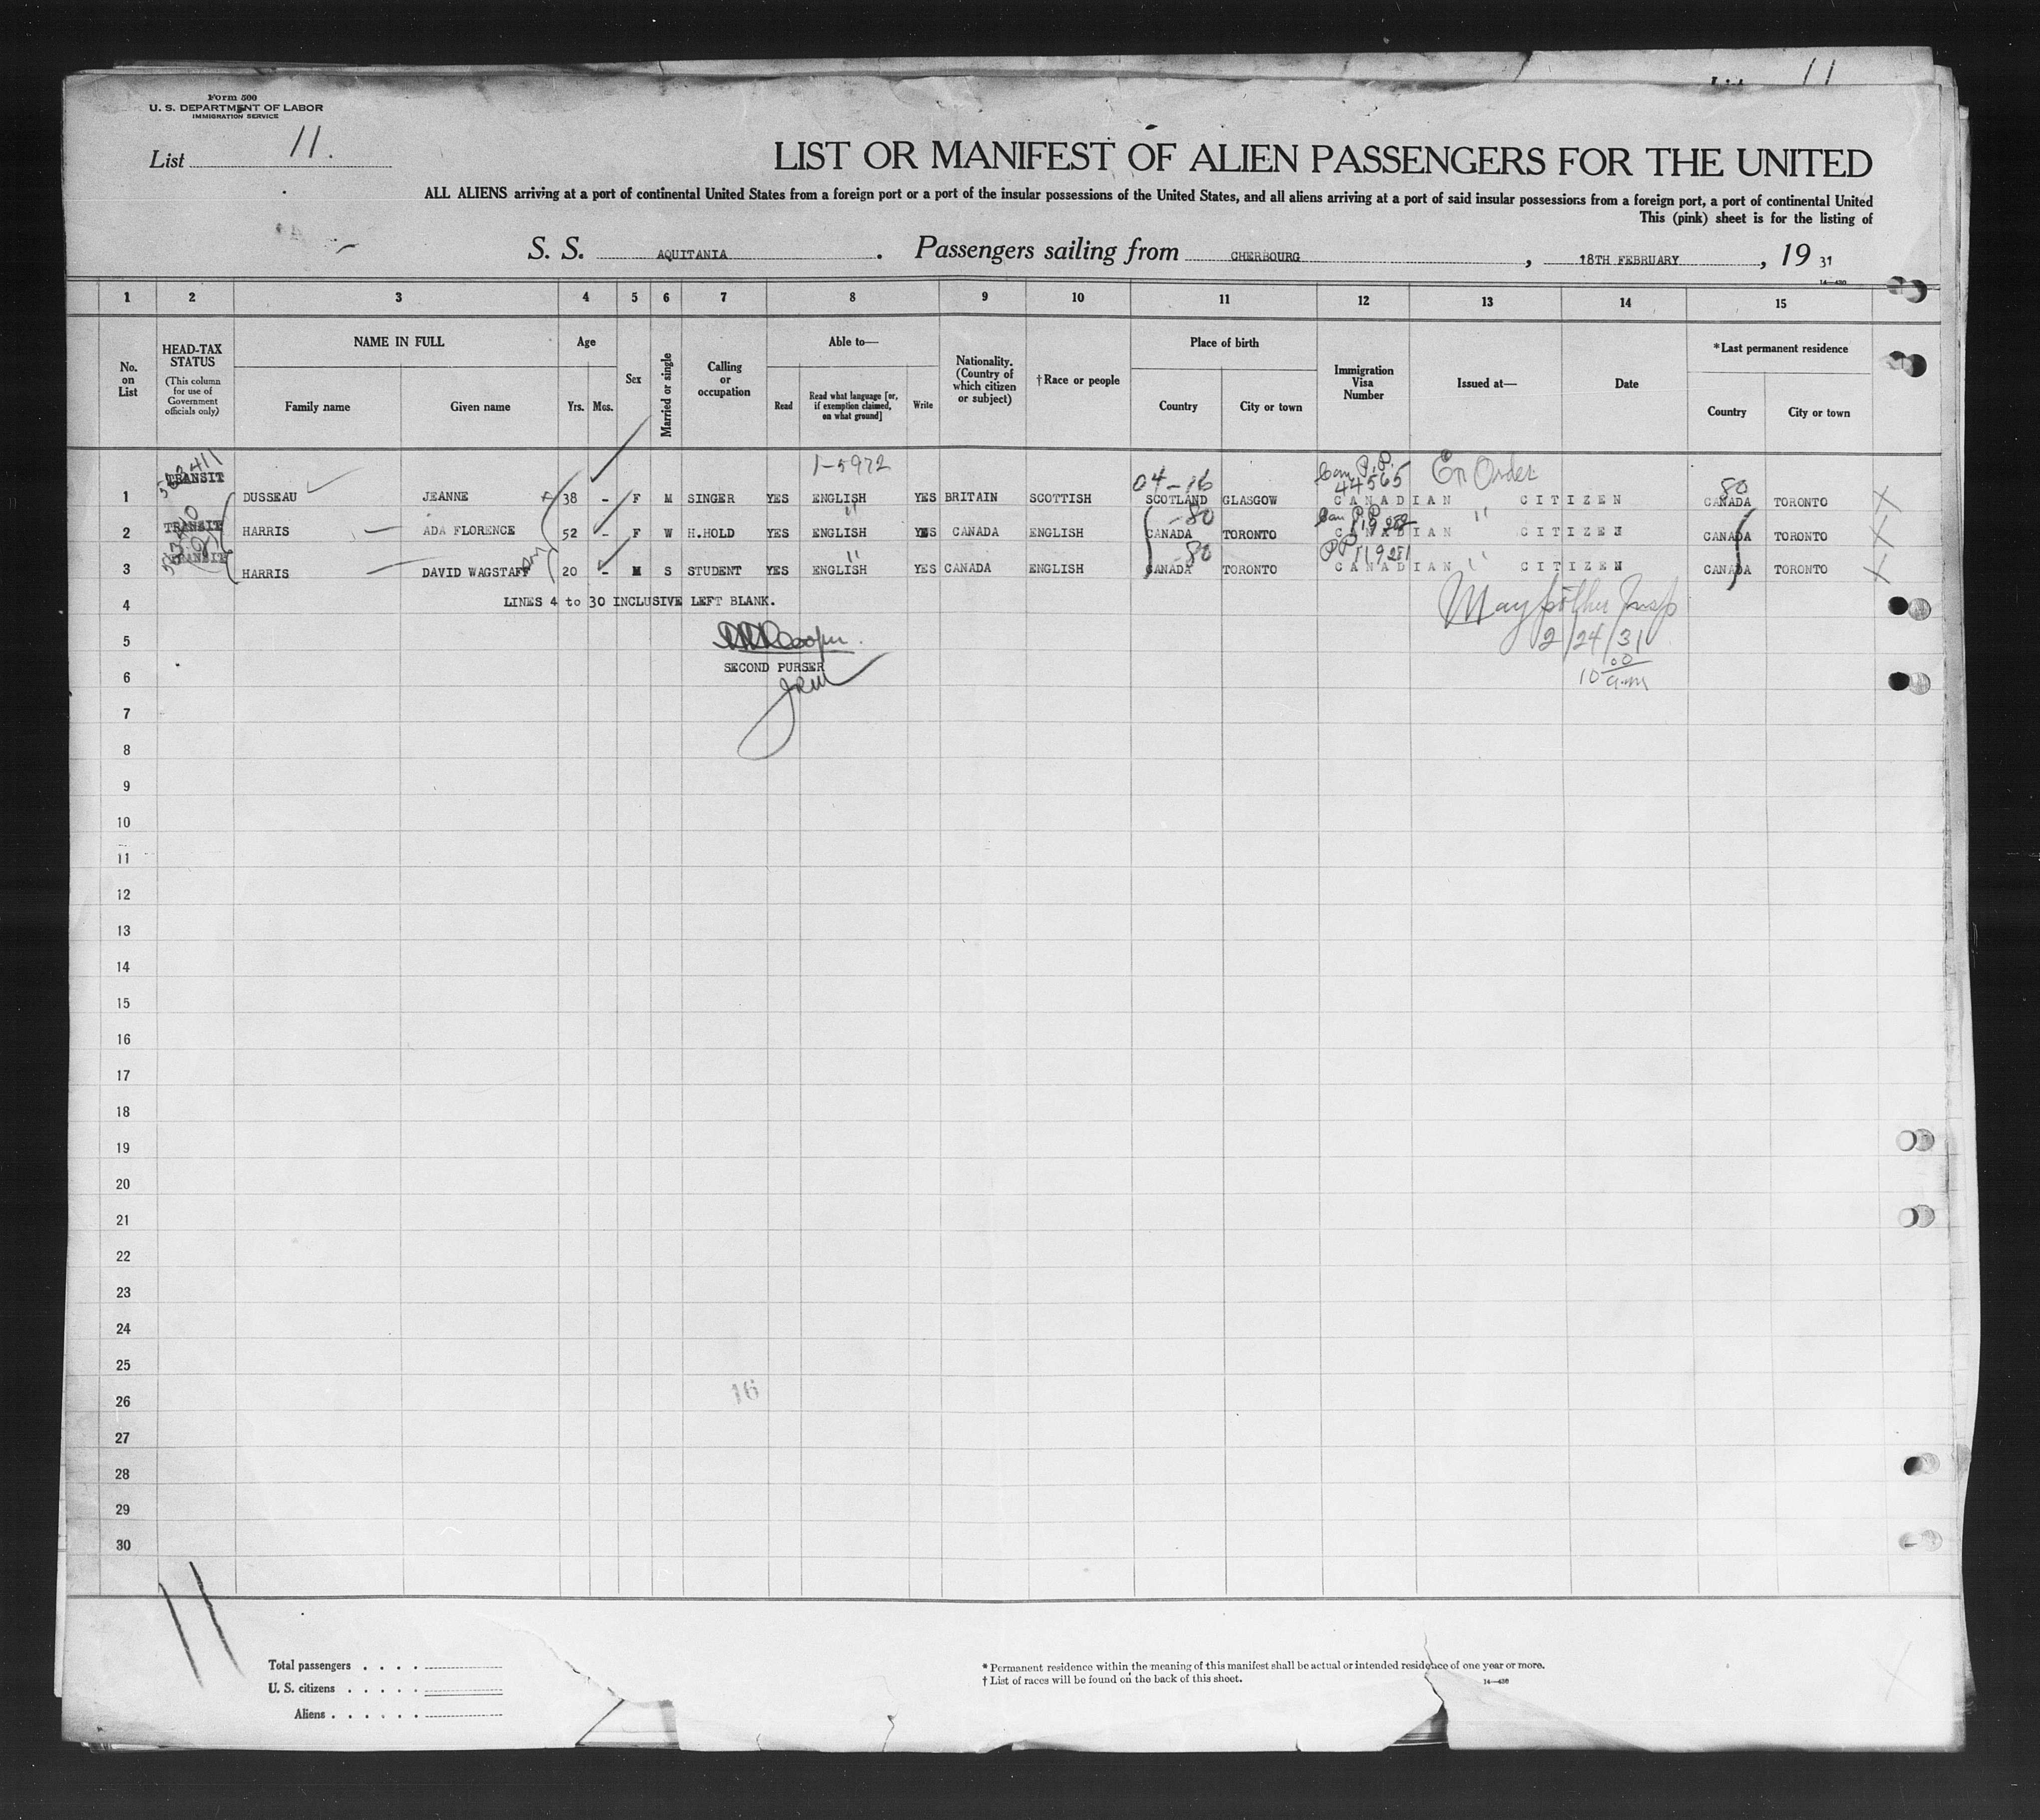 List 11
Form 500
U. S. DEPARTMENT OF LABOR
IMMIGRATION SERVICE
List 11.
LIST OR MANIFEST OF ALIEN PASSENGERS FOR THE UNITED
ALL ALIENS arriving at a port of continental United States from a foreign port or a port of the insular possessions of the United States, and all aliens arriving at a port of said insular possessions from a foreign port, a port of continental United
This (pink) sheet is for the listing of
S. S. AQUITANIA. Passengers sailing from CHERBOURG, 18TH FEBRUARY, 19 31
14—430
1 2 3 4 5 6 7 8 9 10 11 12 13 14 15
No. on List
HEAD-TAX STATUS
(This column for use of Government officials only)
NAME IN FULL
Family name Given name
Age
Yrs. Mos.
Sex
Married or single
Calling or occupation
Able to—
Read
Read what language [or, if exemption claimed, on what ground]
Write
Nationality. (Country of which citizen or subject)
†Race or people
Place of birth
Country City or town
Immigration Visa Number
Issued at—
Date
*Last permanent residence
Country City or town
1-5972 04-16 Can P.P. 44565 En Order 80
1 TRANSIT DUSSEAU JEANNE 38 - F M SINGER YES ENGLISH YES BRITAIN SCOTTISH SCOTLAND GLASGOW CANADIAN CITIZEN CANADA TORONTO X
" -80 Can P.P. "
2 TRANSIT HARRIS — ADA FLORENCE 52 - F W H.HOLD YES ENGLISH YES CANADA ENGLISH CANADA TORONTO CANADIAN CITIZEN CANADA TORONTO X
" -80 PP 119281 "
3 TRANSIT HARRIS — DAVID WAGSTAFF 20 - M S STUDENT YES ENGLISH YES CANADA ENGLISH CANADA TORONTO CANADIAN CITIZEN CANADA TORONTO X
4 LINES 4 to 30 INCLUSIVE LEFT BLANK.
Insp
5 2/24/31
SECOND PURSER
6 10 00 a.m
JRM
7
8
9
10
11
12
13
14
15
16
17
18
19
20
21
22
23
24
25
16
26
27
28
29
30
11
Total passengers . . . .
U. S. citizens . . . . .
Aliens . . . . . .
* Permanent residence within the meaning of this manifest shall be actual or intended residence of one year or more.
† List of races will be found on the back of this sheet.
14—430